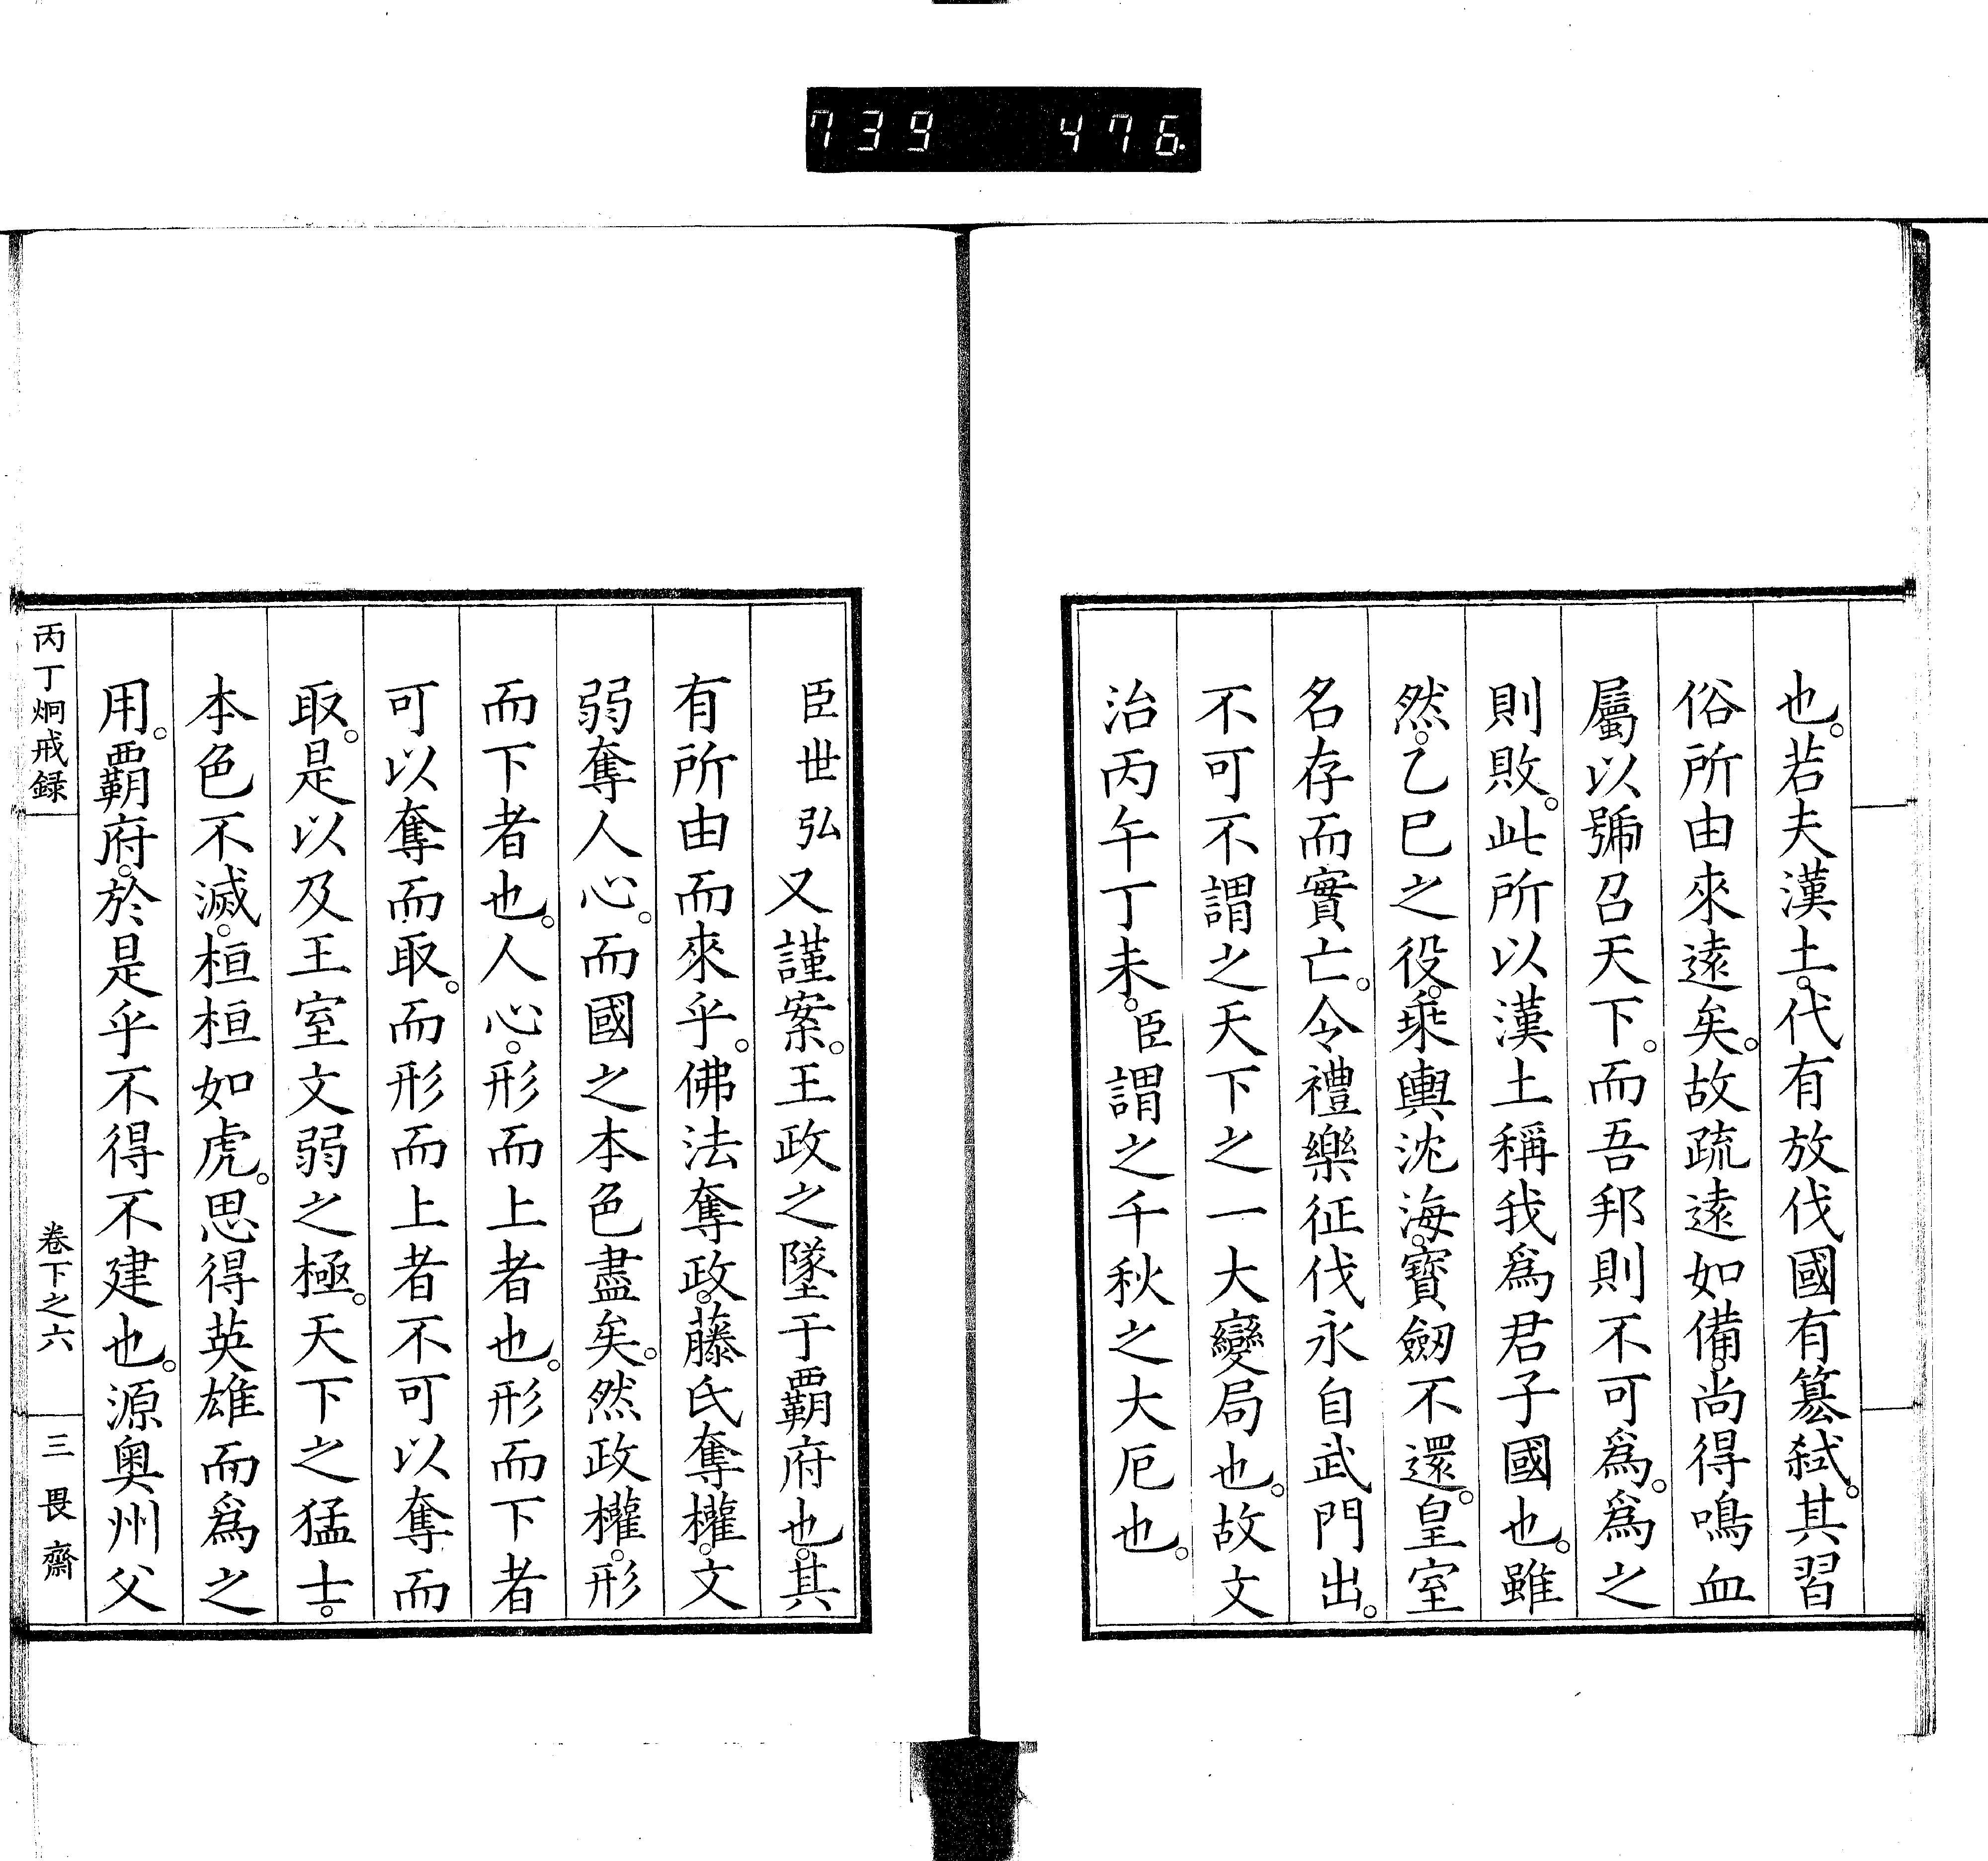 739 476
也。若夫漢土。代有放伐國有簒弑。其習
俗所由來遠矣。故疏遠如備。尚得鳴血
屬以號召天下。而吾邦則不可爲。爲之
則敗。此所以漢土稱我爲君子國也。雖
然。乙巳之役。乘輿沈海。寶劔不還。皇室
名存而實亡。令禮樂征伐永自武門出。
不可不謂之天下之一大變局也。故文
治丙午丁未。臣謂之千秋之大厄也。
臣世弘又謹案。王政之墜于覇府也。其
有所由而來乎。佛法奪政。藤氏奪權。文
弱奪人心。而國之本色盡矣。然政權。形
而下者也。人心。形而上者也。形而下者
可以奪而取。而形而上者不可以奪而
取。是以及王室文弱之極。天下之猛士。
本色不滅。桓桓如虎。思得英雄而爲之
用。覇府。於是乎不得不建也。源奧州父
丙丁炯戒録
卷下之六
三畏齋